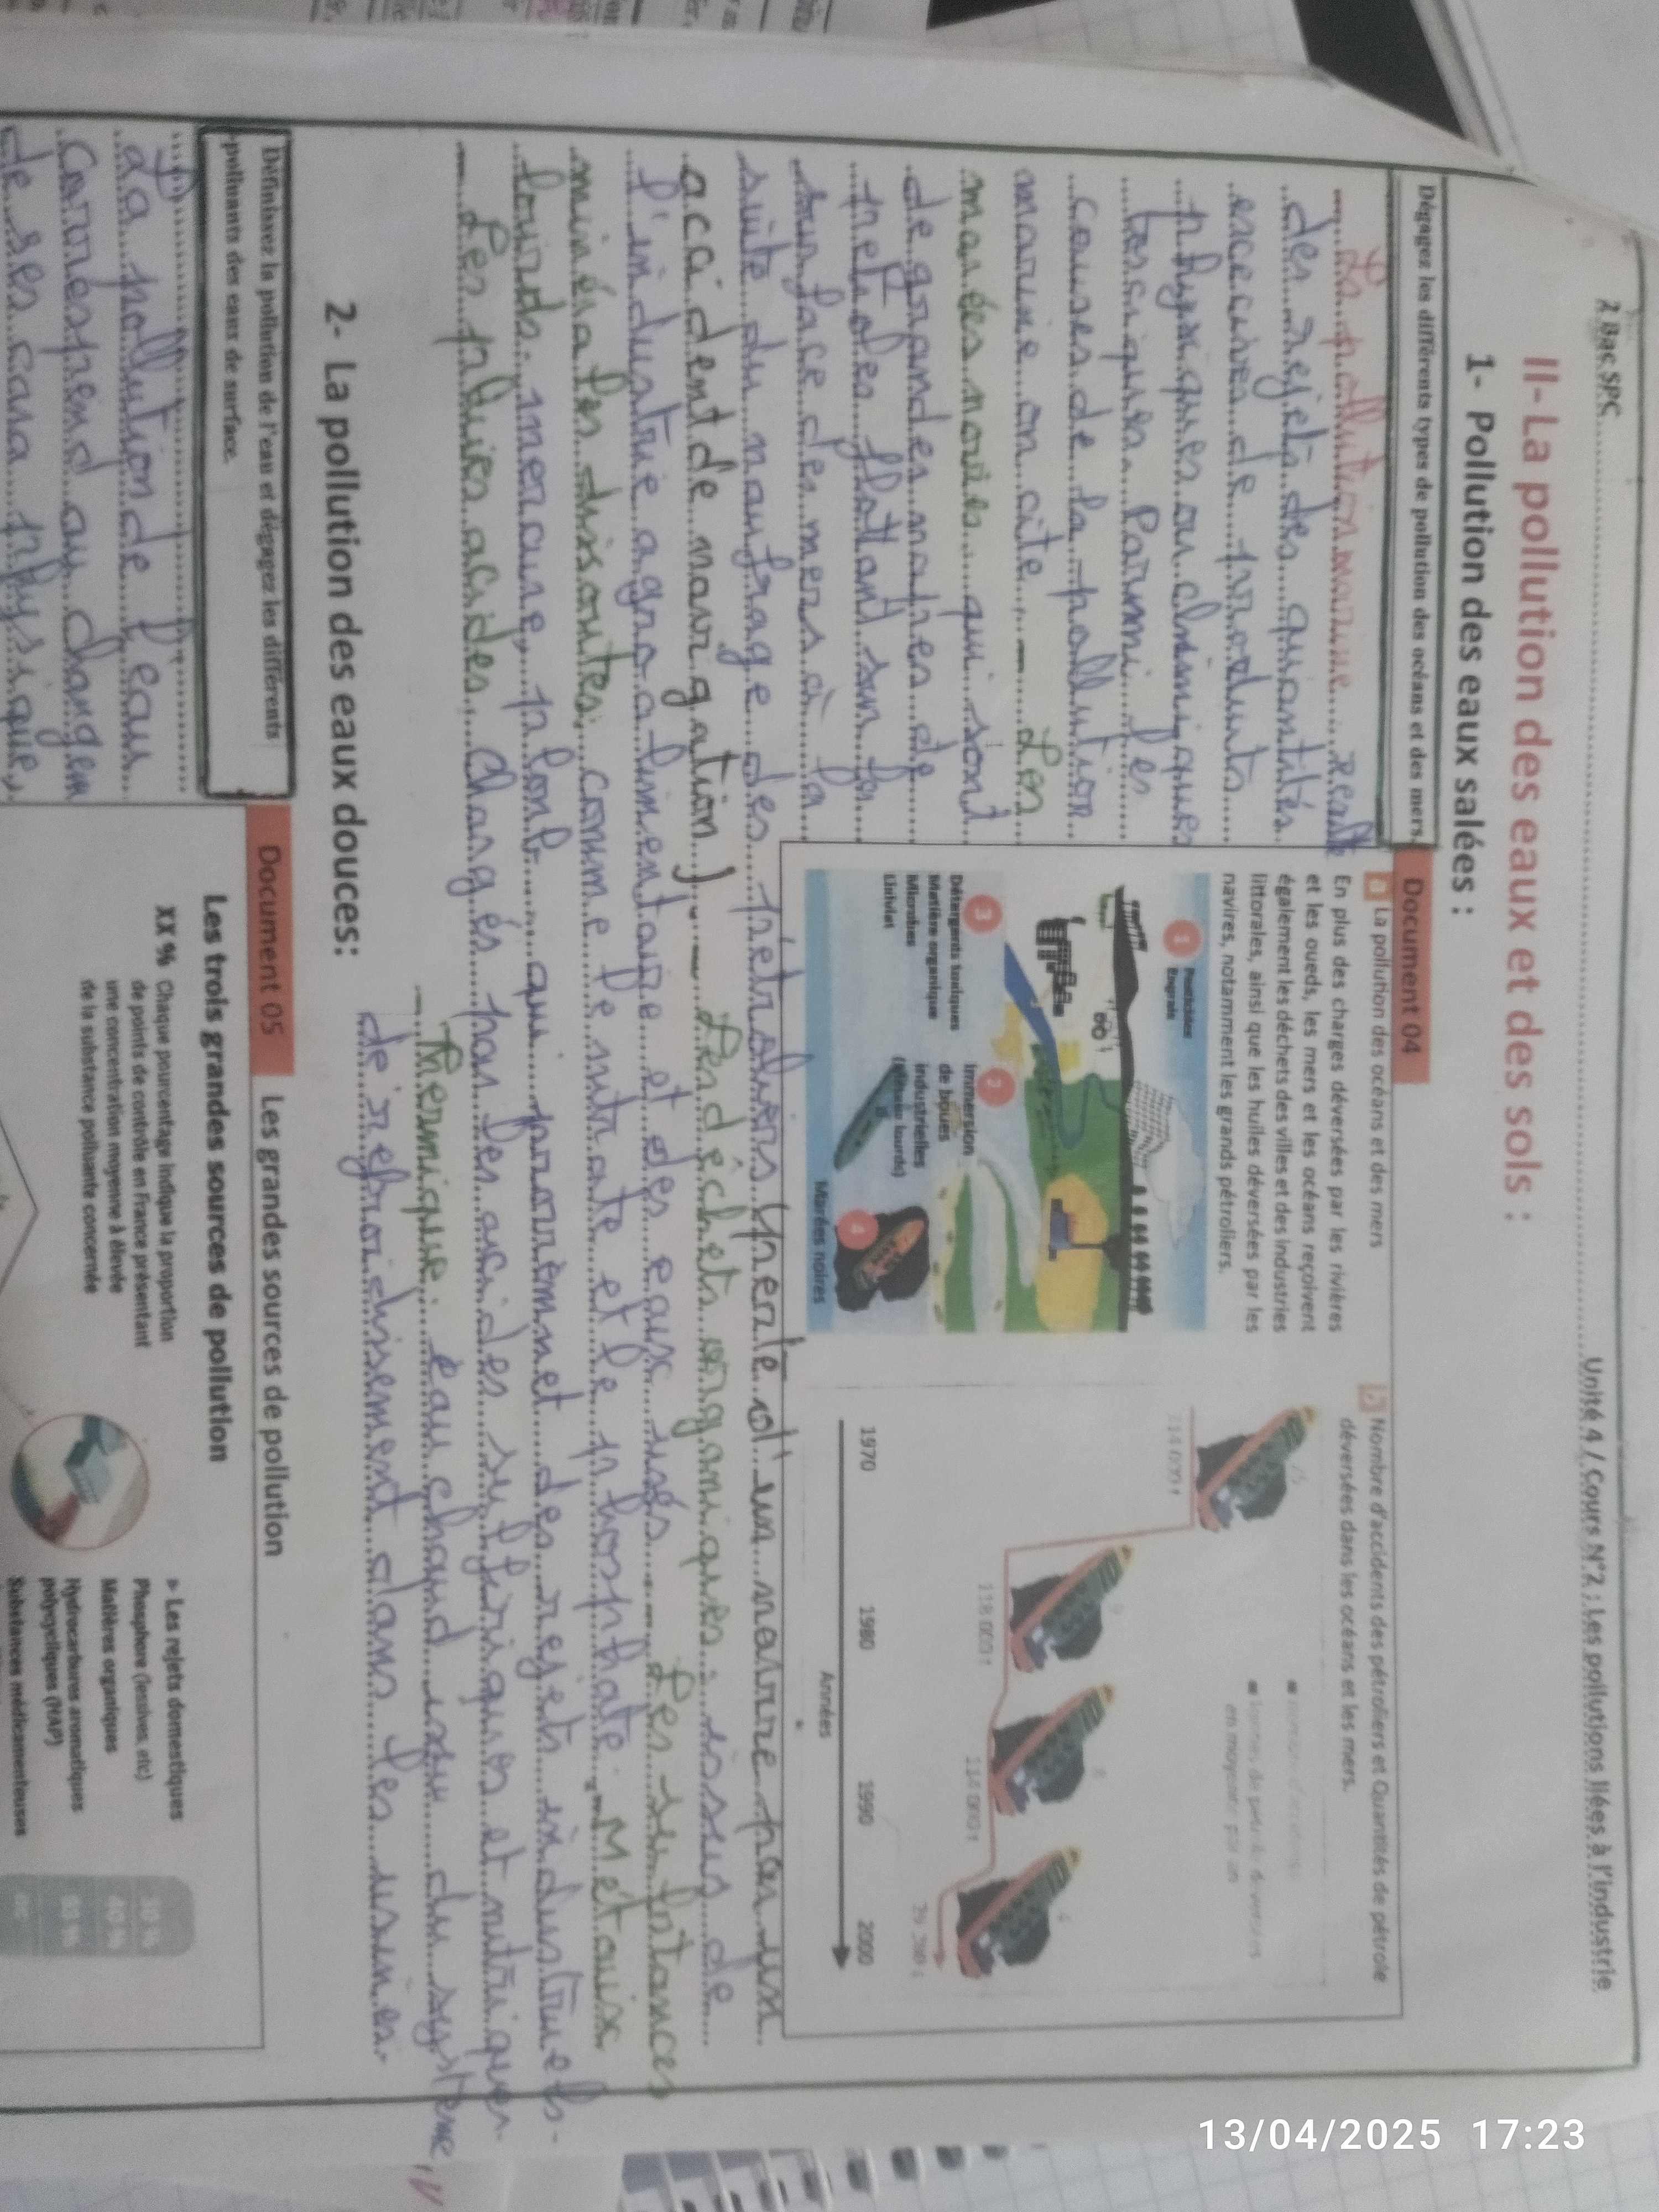 2 Bac SPC
Unité 4 / Cours N°2 : Les pollutions liées à l'industrie
II- La pollution des eaux et des sols :
1- Pollution des eaux salées :
Dégagez les différents types de pollution des océans et des mers.
La pollution marine : resulte
des rejets des quantités
excecives de produits
physiques ou chimiques
toxiques. Parmi les
causes de la pollution
marine on cite, - Les
marées noires qui sont
de grandes
petroles flottant sur la
surface des mers à la
suite du naufrage des pétroliers (perte d'un navire par un
accident de navigation). - Les déchets organiques : issus de
l'industrie agroalimentaire et des eaux usés - Les substances
minérales dissoutes; comme le nitrate et le phosphate. - Métaux
lourds. mercure, plomb qui
- Les pluies acides, chargés par les acides sulfuriques et nitriques.
- thermique : eau chaud du système
de refroidissement dans les usines.
Document 04
a La pollution des océans et des mers
En plus des charges déversées par les rivières
et les oueds, les mers et les océans reçoivent
également les déchets des villes et des industries
littorales, ainsi que les huiles déversées par les
navires, notamment les grands pétroliers.
1 Pesticides
Engrais
3
Détergents toxiques
Matière organique
Microbes
Lixiviat
2
Immersion
de boues
industrielles
4
Marées noires
b Nombre d'accidents des pétroliers et Quantités de pétrole
déversées dans les océans et les mers.
en moyenne par an
314 000 t
118 000 t
114 000 t
1970 1980 1990 2000
Années
2- La pollution des eaux douces:
Définissez la pollution de l'eau et dégagez les différents
polluants des eaux de surface.
La pollution de l'eau
correspend au changem
de ses cara physique,
Document 05 Les grandes sources de pollution
Les trois grandes sources de pollution
XX % Chaque pourcentage indique la proportion
de points de contrôle en France présentant
une concentration moyenne à élevée
de la substance polluante concernée
Les rejets domestiques
Phosphore (lessives, etc)
Matières organiques
Hydrocarbures aromatiques
polycycliques (HAP)
Substances médicamenteuses
13/04/2025 17:23